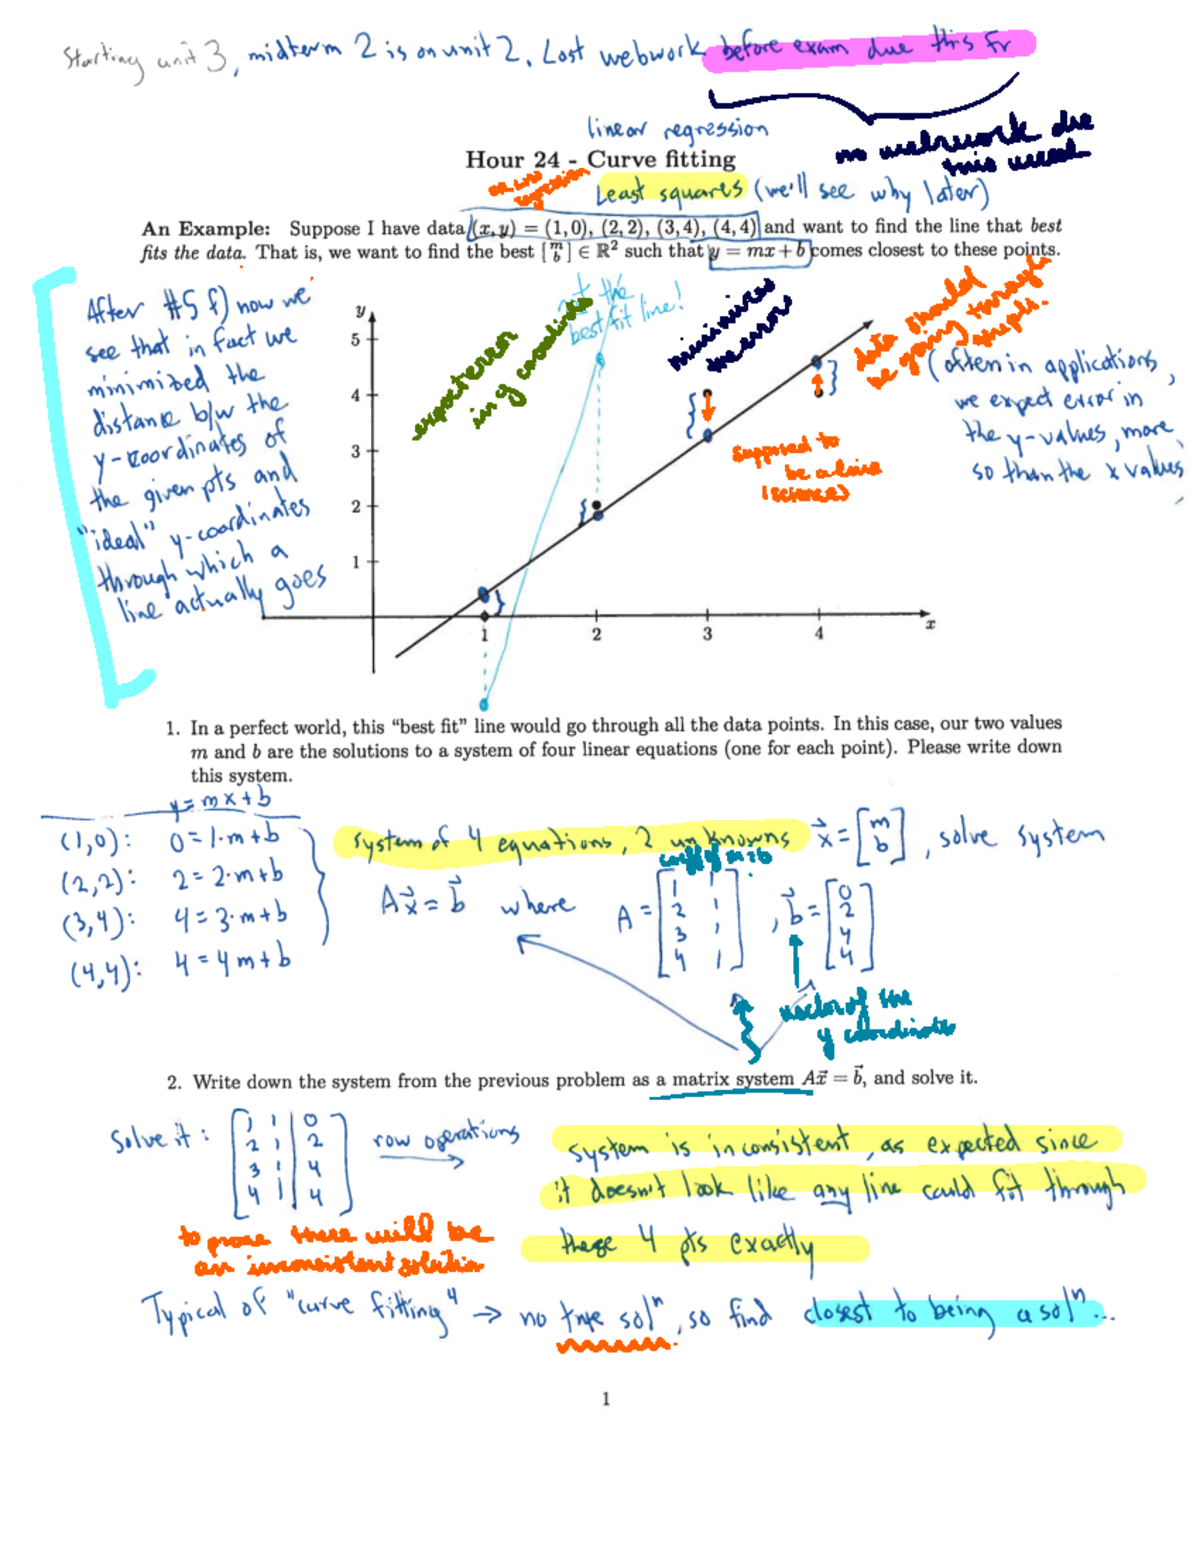 Starting unit 3, midterm 2 is on unit 2. Last webwork before exam due this Fr
no webwork due
this week
linear regression
Hour 24 - Curve fitting
regression
Least squares (we'll see why later)
An Example: Suppose I have data (x, y) = (1, 0), (2, 2), (3, 4), (4, 4) and want to find the line that best
fits the data. That is, we want to find the best [m b] ∈ ℝ² such that y = mx + b comes closest to these points.
After #5 f) now we
see that in fact we
minimized the
distance b/w the
y-coordinates of
the given pts and
"ideal" y-coordinates
through which a
line actually goes
y
5
4
3
2
1
1
2
3
4
x
in y coordinate
not the
best fit line!
minimizes
the error
data should
be going through
Supposed to
be a line
(science)
(often in applications,
we expect error in
the y-values, more
so than the x values
1. In a perfect world, this “best fit” line would go through all the data points. In this case, our two values
m and b are the solutions to a system of four linear equations (one for each point). Please write down
this system.
y = mx + b
(1,0): 0 = 1·m + b
(2,2): 2 = 2·m + b
(3,4): 4 = 3·m + b
(4,4): 4 = 4m + b
System of 4 equations, 2 unknowns x⃗ = [m b], solve system
coeff of m & b
Ax⃗ = b⃗ where A = [1 1; 2 1; 3 1; 4 1], b⃗ = [0 2 4 4]
vector of the
y coordinates
2. Write down the system from the previous problem as a matrix system Ax⃗ = b⃗, and solve it.
Solve it: [1 1 | 0; 2 1 | 2; 3 1 | 4; 4 1 | 4] row operations
system is inconsistent, as expected since
it doesn't look like any line could fit through
these 4 pts exactly
to prove there will be
an inconsistent solution
Typical of "curve fitting" → no true solⁿ, so find closest to being a solⁿ...
1